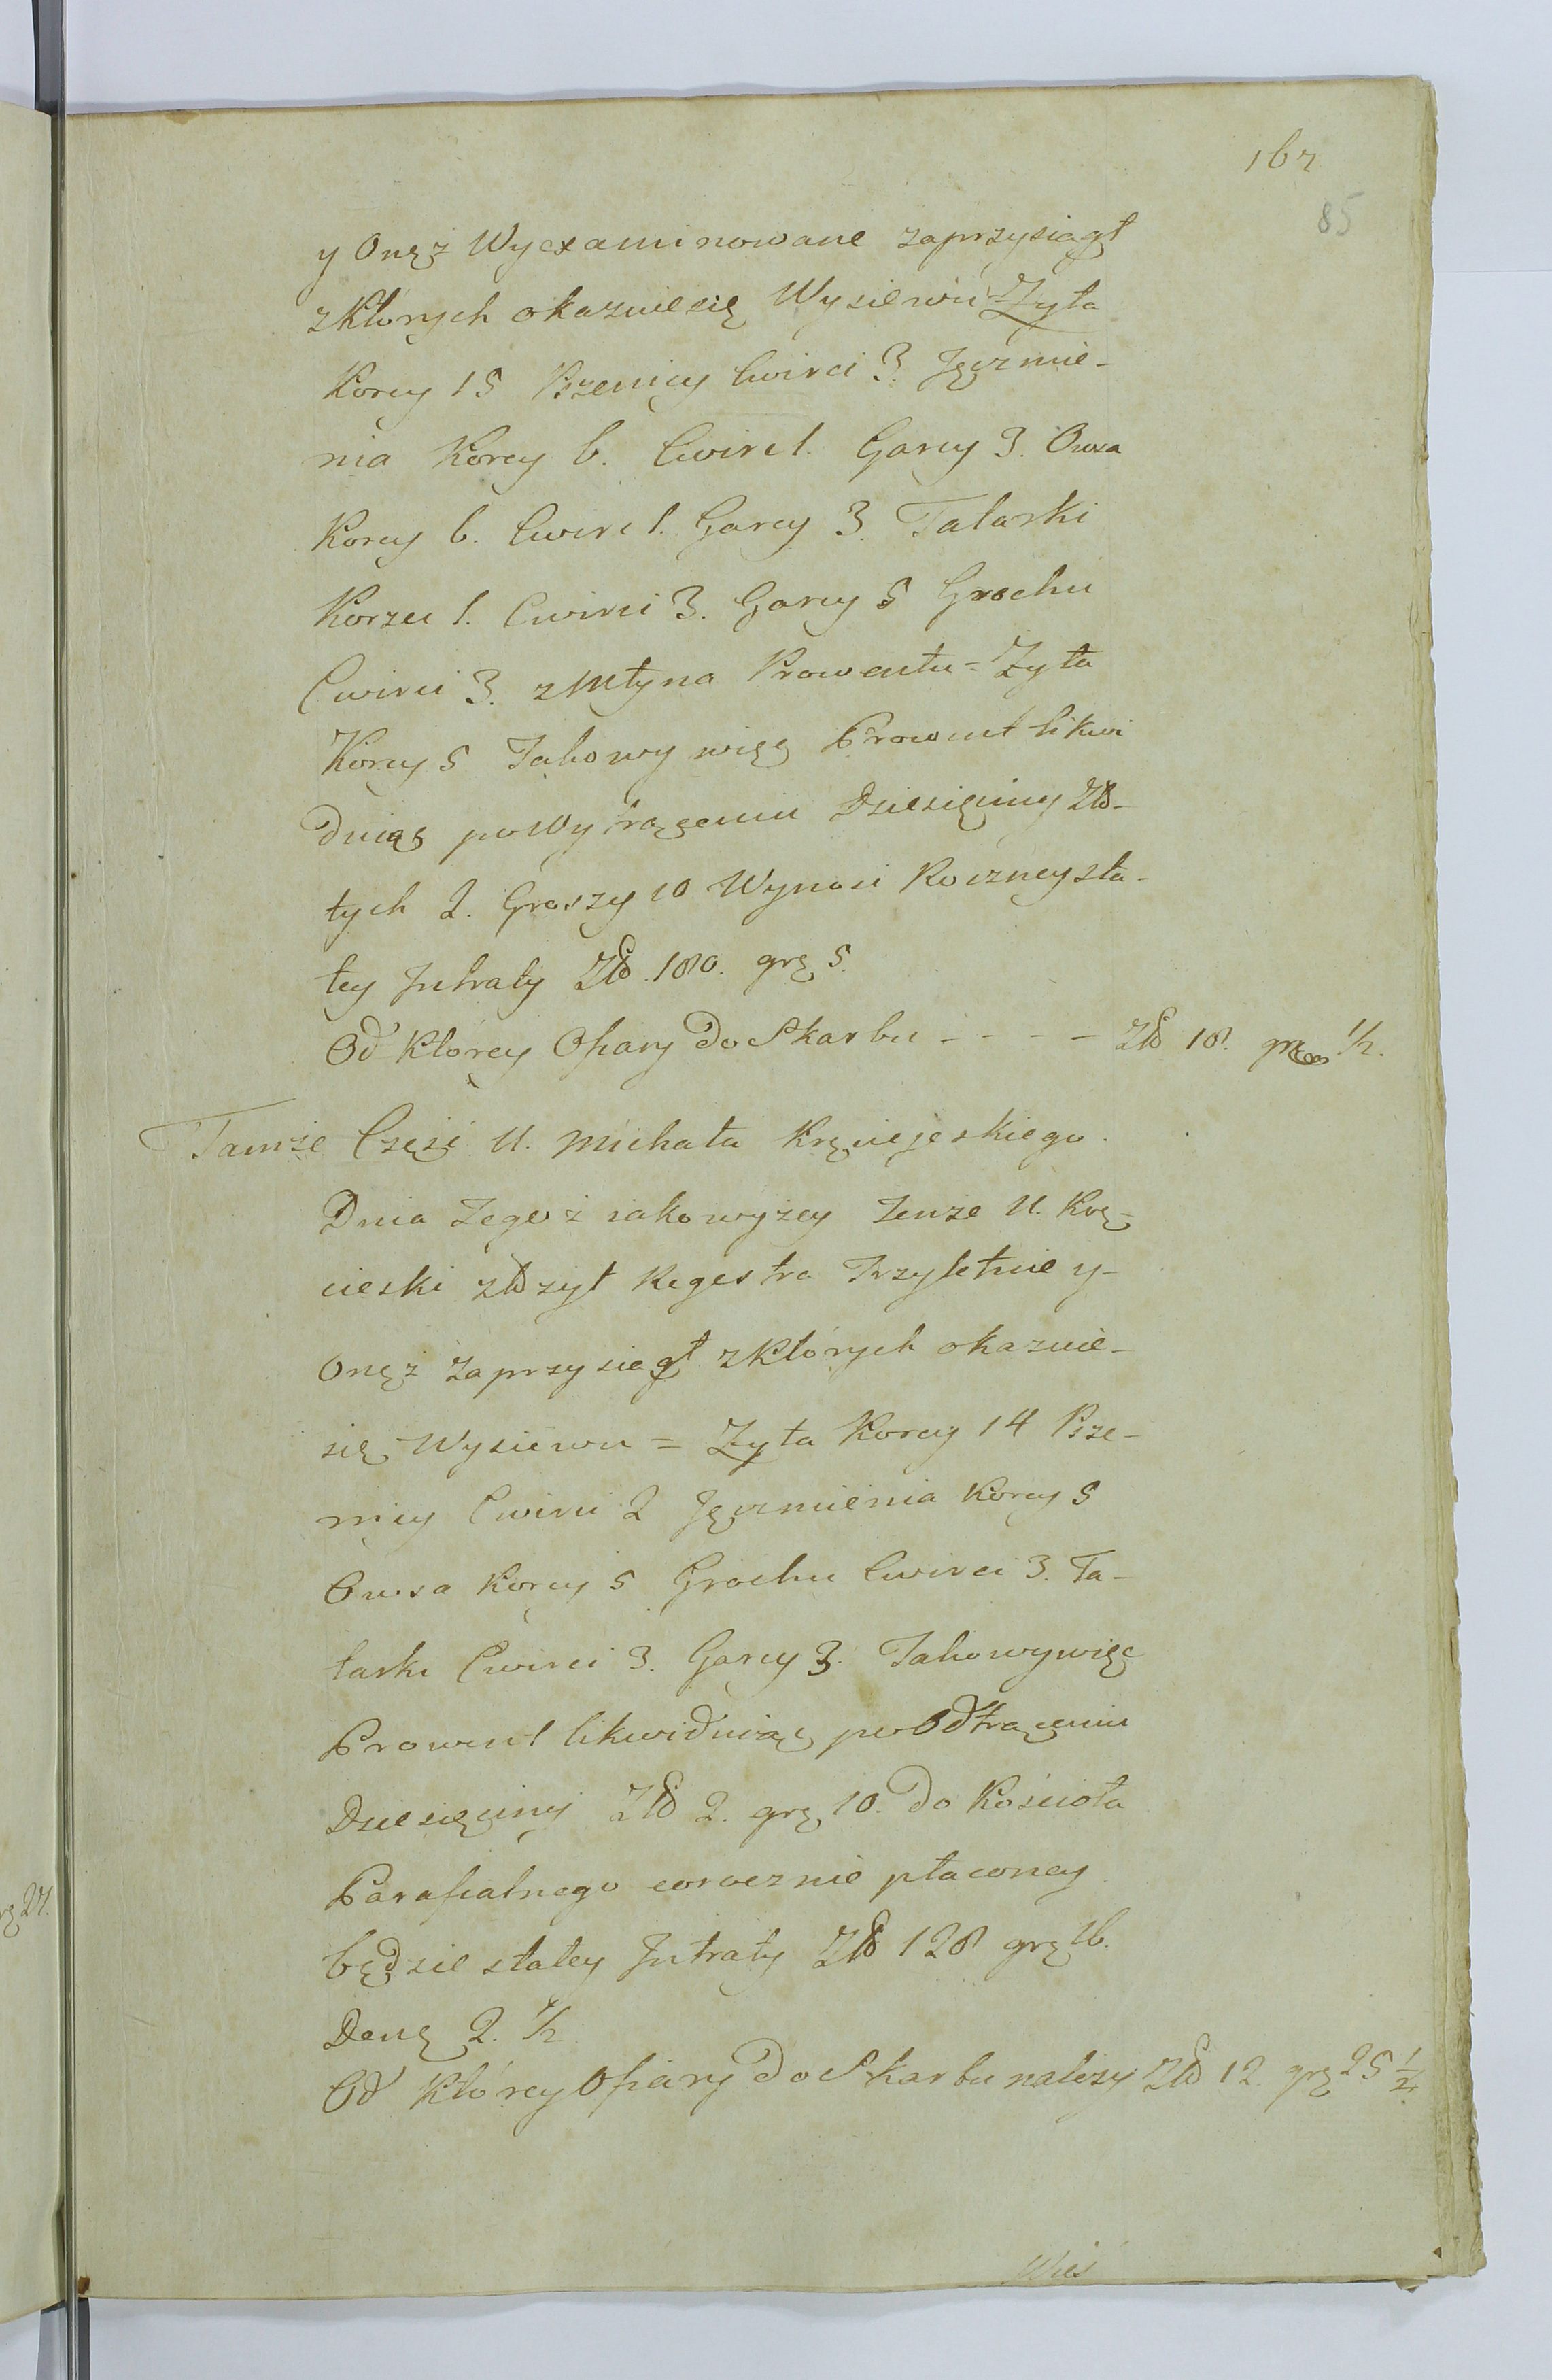 167
85
y Onęż Wyexaminowane zaprzysiągł
z Których okazuie się Wysiewu Zyta
Korcy 15 Pszenicy Cwirci 3. Jęczmie-
nia Korcy 6. Cwirć 1. Garcy 3. Owsa
Korcy 6. Cwirć 1. Garcy 3. Tatarki
Korzec 1. Cwirci 3. Garcy 5 Grochu
Cwirci 3. z Młyna Prowentu = Zyta
Korcy 5 Takowy więc Prowent likwi
duiąc po Wytrąceniu Dziesięciny Zło-
tych 2. Groszy 10 Wynosi Roczney sta-
łey Jntraty Zło. 180. grę 5.
Od Którey Ofiary do Skarbu - - - - Zło 18. grę ½.
Tamże Część U. Michała Kręciejeskiego.
Dnia Tegoż iako wyżey Tenże U. Krę-
cieski złożył Regestra Trzyletnie y-
Onęż zaprzysiegł z Których okazuie-
się Wysiewu = Zyta Korcy 14 Psze-
nicy Cwirci 2 Jęczmienia Korcy 5
Owsa Korcy 5 Grochu Cwirci 3. Ta-
tarki Cwirci 3. Garcy 3. Takowy więc
Prowent likwiduiąc po Odtrąceniu
Dziesięciny Zło 2. grę 10. do Kościoła
Parafialnego corocznie płaconey
będzie stałey Jntraty Zło 128 grę 16.
Denę 2. ½
Od Którey Ofiary do Skarbu należy Zło 12. grę 25 ½.
Wieś
rę 27.